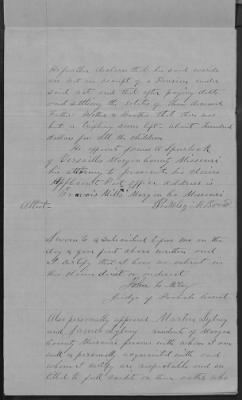 He further declares that his said wards
are not in receipt of a Pension under
said act and that after paying debts
and settling the estates of their deceased
Father Mother & brother that there was
but a trifling sum left about hundred
dollars for all the children
He appoints James A Spurlock
of Versailles Morgan County Missouri
his attorney to prosecute his claim
Applicants Post office address is
Mills Morgan Co Missouri
Attest
Sworn to & subscribed before me on the
day & year first above written and
I certify that I have no interest in
this claim direct or indirect
John
Judge of Probate Court
Also personally appeared Martin
and residents of Morgan
County Missouri persons with whom I am
well & personally acquainted with and
whom I certify are respectable and en
titled to full credit on their oaths who